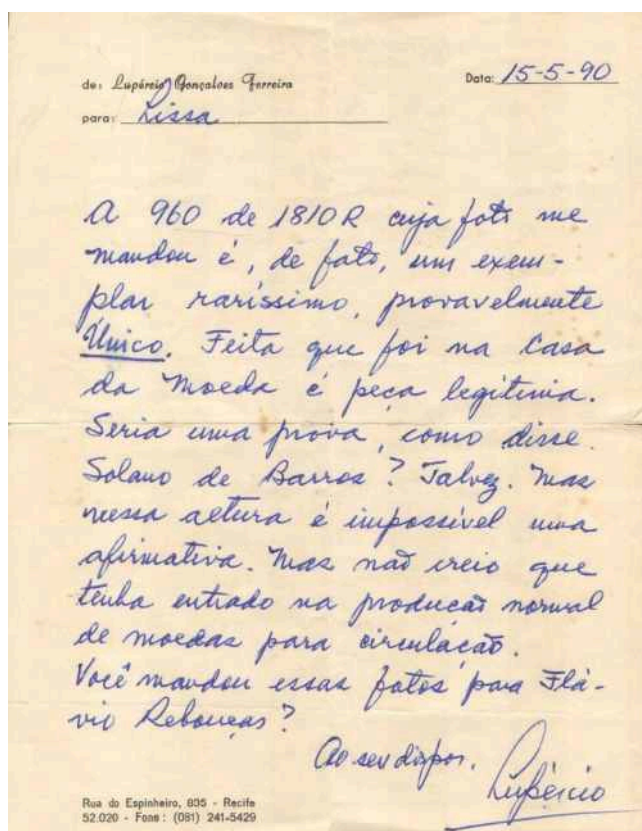 de: Lupércio Gonçalves Ferreira
Data: 15-5-90
para: Lissa
A 960 de 1810R cuja foto me
mandou é, de fato, um exem-
plar raríssimo, provavelmente
Único. Feita que foi na Casa
da Moeda é peça legítima.
Seria uma prova, como disse
Solano de Barros? Talvez. Mas
nessa altura é impossível uma
afirmativa. Mas não creio que
tenha entrado na produção normal
de moedas para circulação.
Você mandou essas fotos para Flá-
vio Rebouças?
Ao seu dispor,
Lupércio
Rua do Espinheiro, 835 - Recife
52.020 - Fone: (081) 241-5429